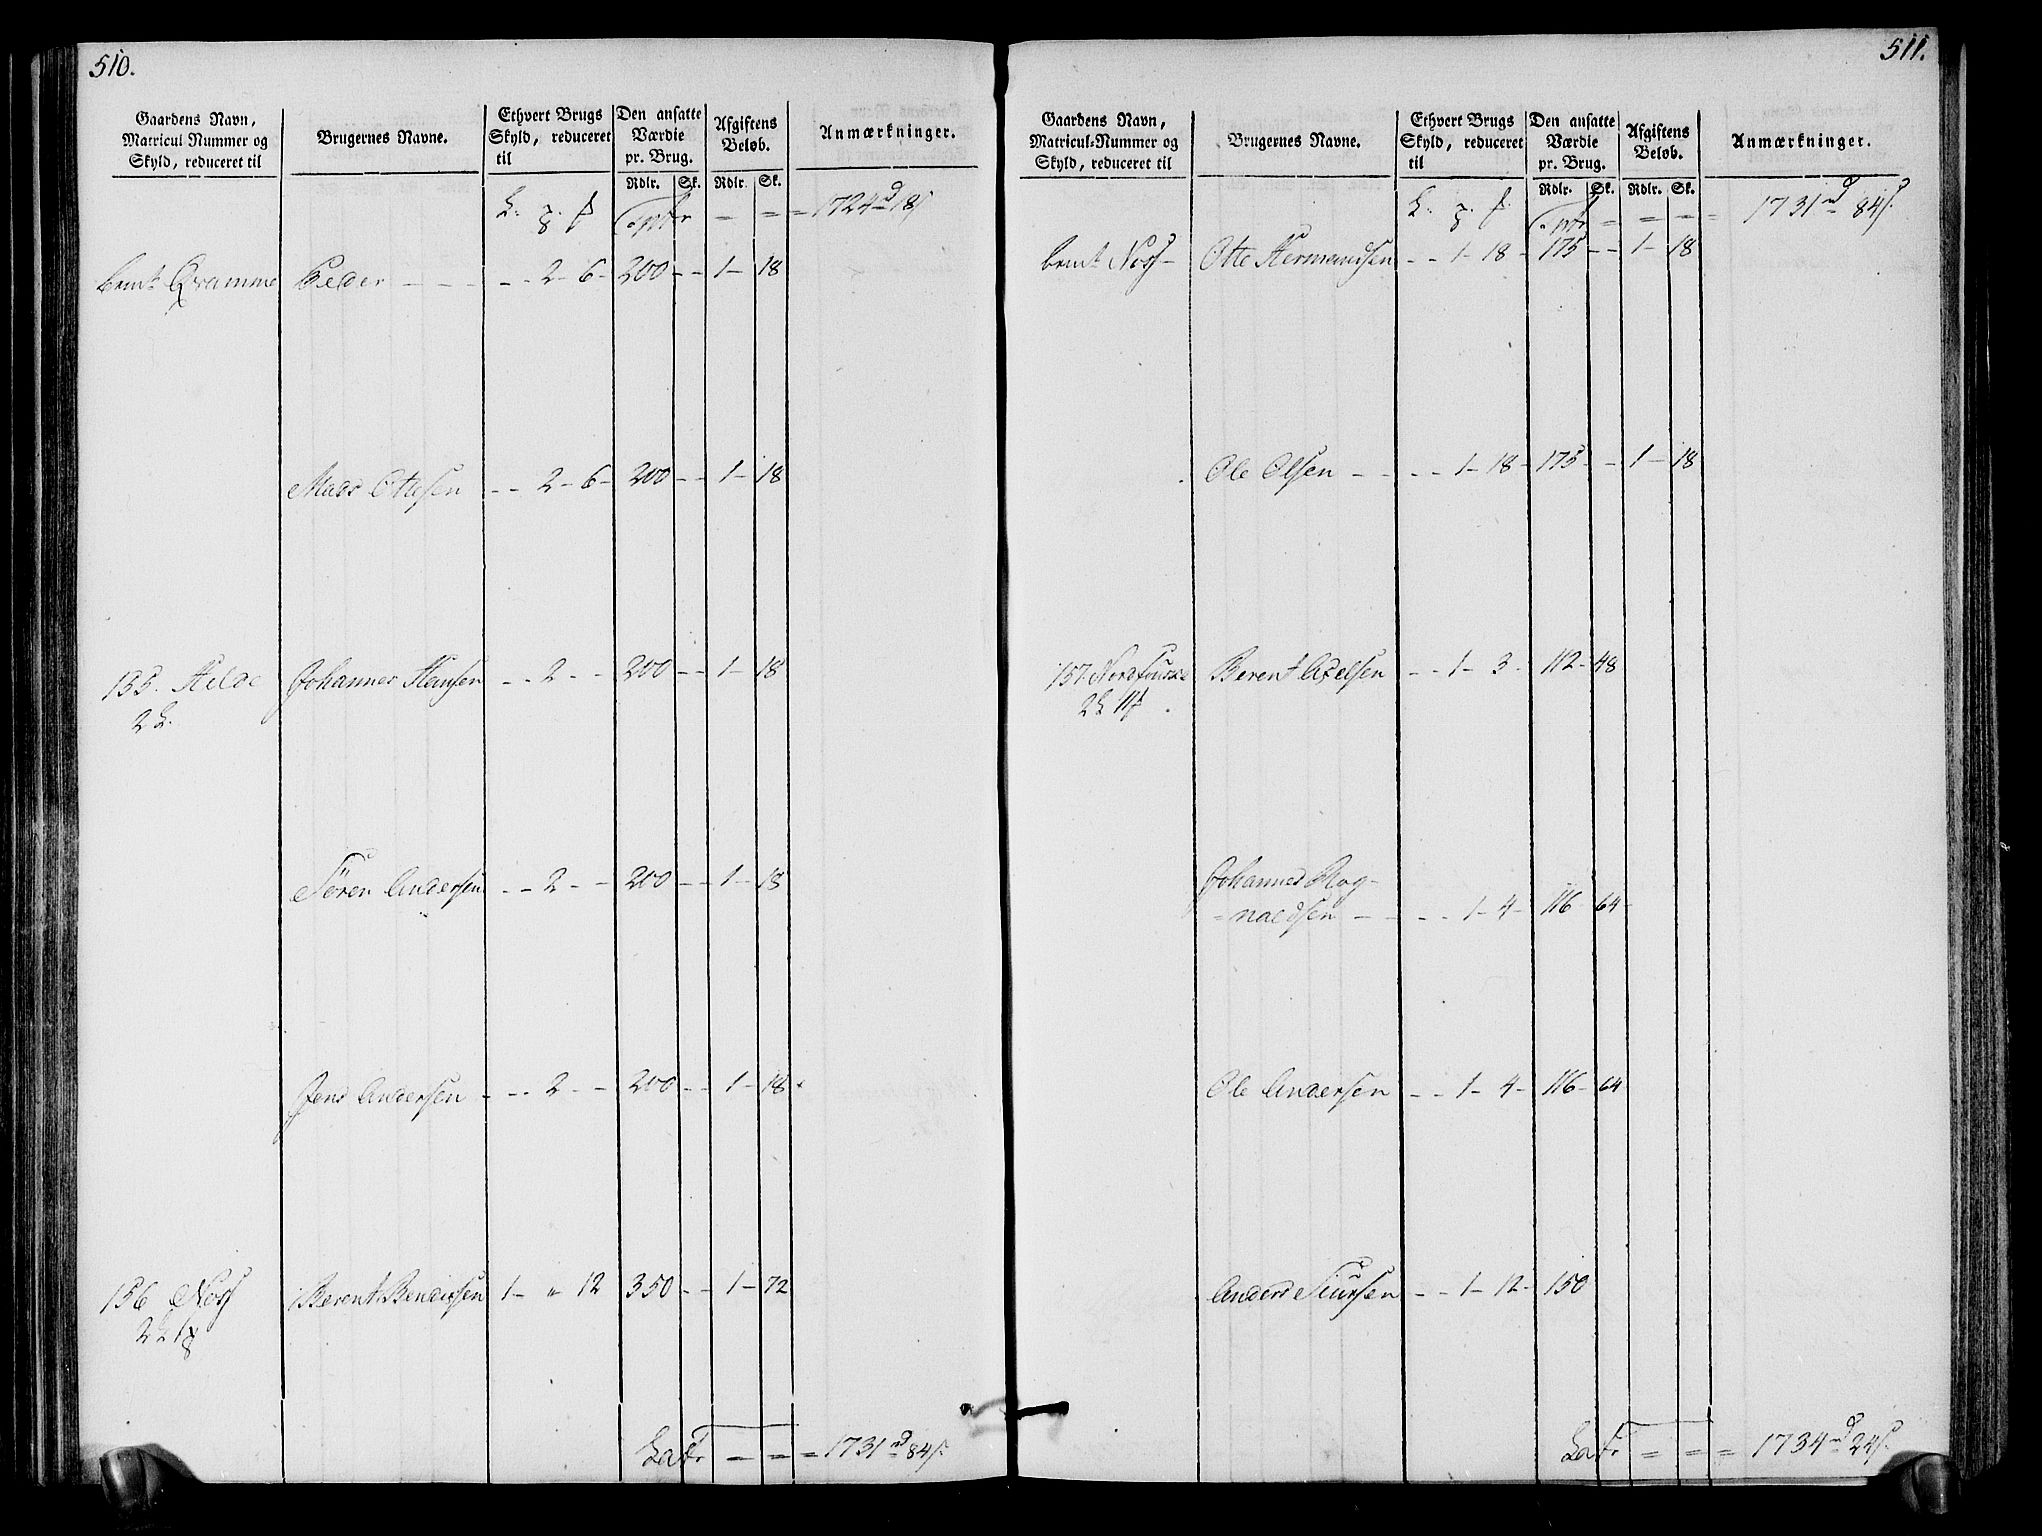 510.
Gaardens Navn,
Matricul Nummer og
Skyld, reduceret til
Brugernes Navne.
Ethvert Brugs
Skyld, reduceret
til
Den ansatte
Værdie
pr. Brug.
Afgiftens
Beløb.
Anmærkninger.
Rdlr. Sk. Rdlr. Sk.
= = = 1724 18
Qvamme Peder - - - - - 2 - 6 - 200 - - 1 - 18
Mads Ottesen - - 2 - 6 - 200 - - 1 - 18
155. Hilde Johannes Hansen - - 2 - - 200 - - 1 - 18
2
Søren Andersen - - 2 - - 200 - - 1 - 18
Jens Andersen - - - 2 - - 200 - - 1 - 18
156 Noss Berent Bendixsen 1 - " 12 350 - - 1 - 72
2 1
Latr = = = 1731 84
511.
Gaardens Navn,
Matricul-Nummer og
Skyld, reduceret til
Brugernes Navne.
Ethvert Brugs
Skyld, reduceret
til
Den ansatte
Værdie
pr. Brug.
Afgiftens
Beløb.
Anmærkninger.
Rdlr. Sk. Rdlr. Sk.
= = = = 1731 84
Noss - Otte Hermandsen - - 1 - 18 - 175 - - 1 - 18
Ole Olsen - - - - 1 - 18 - 175 - - 1 - 18
157. Berent Axelsen - - 1 - 3 - 112 - 48
2 11
Johannes Rog-
=naldsen - - - - 1 - 4 - 116 64 -
Ole Andersen - - 1 - 4 - 116 - 64
Anders Siursen - - 1 - 12 - 150
Latr = = = 1734 24